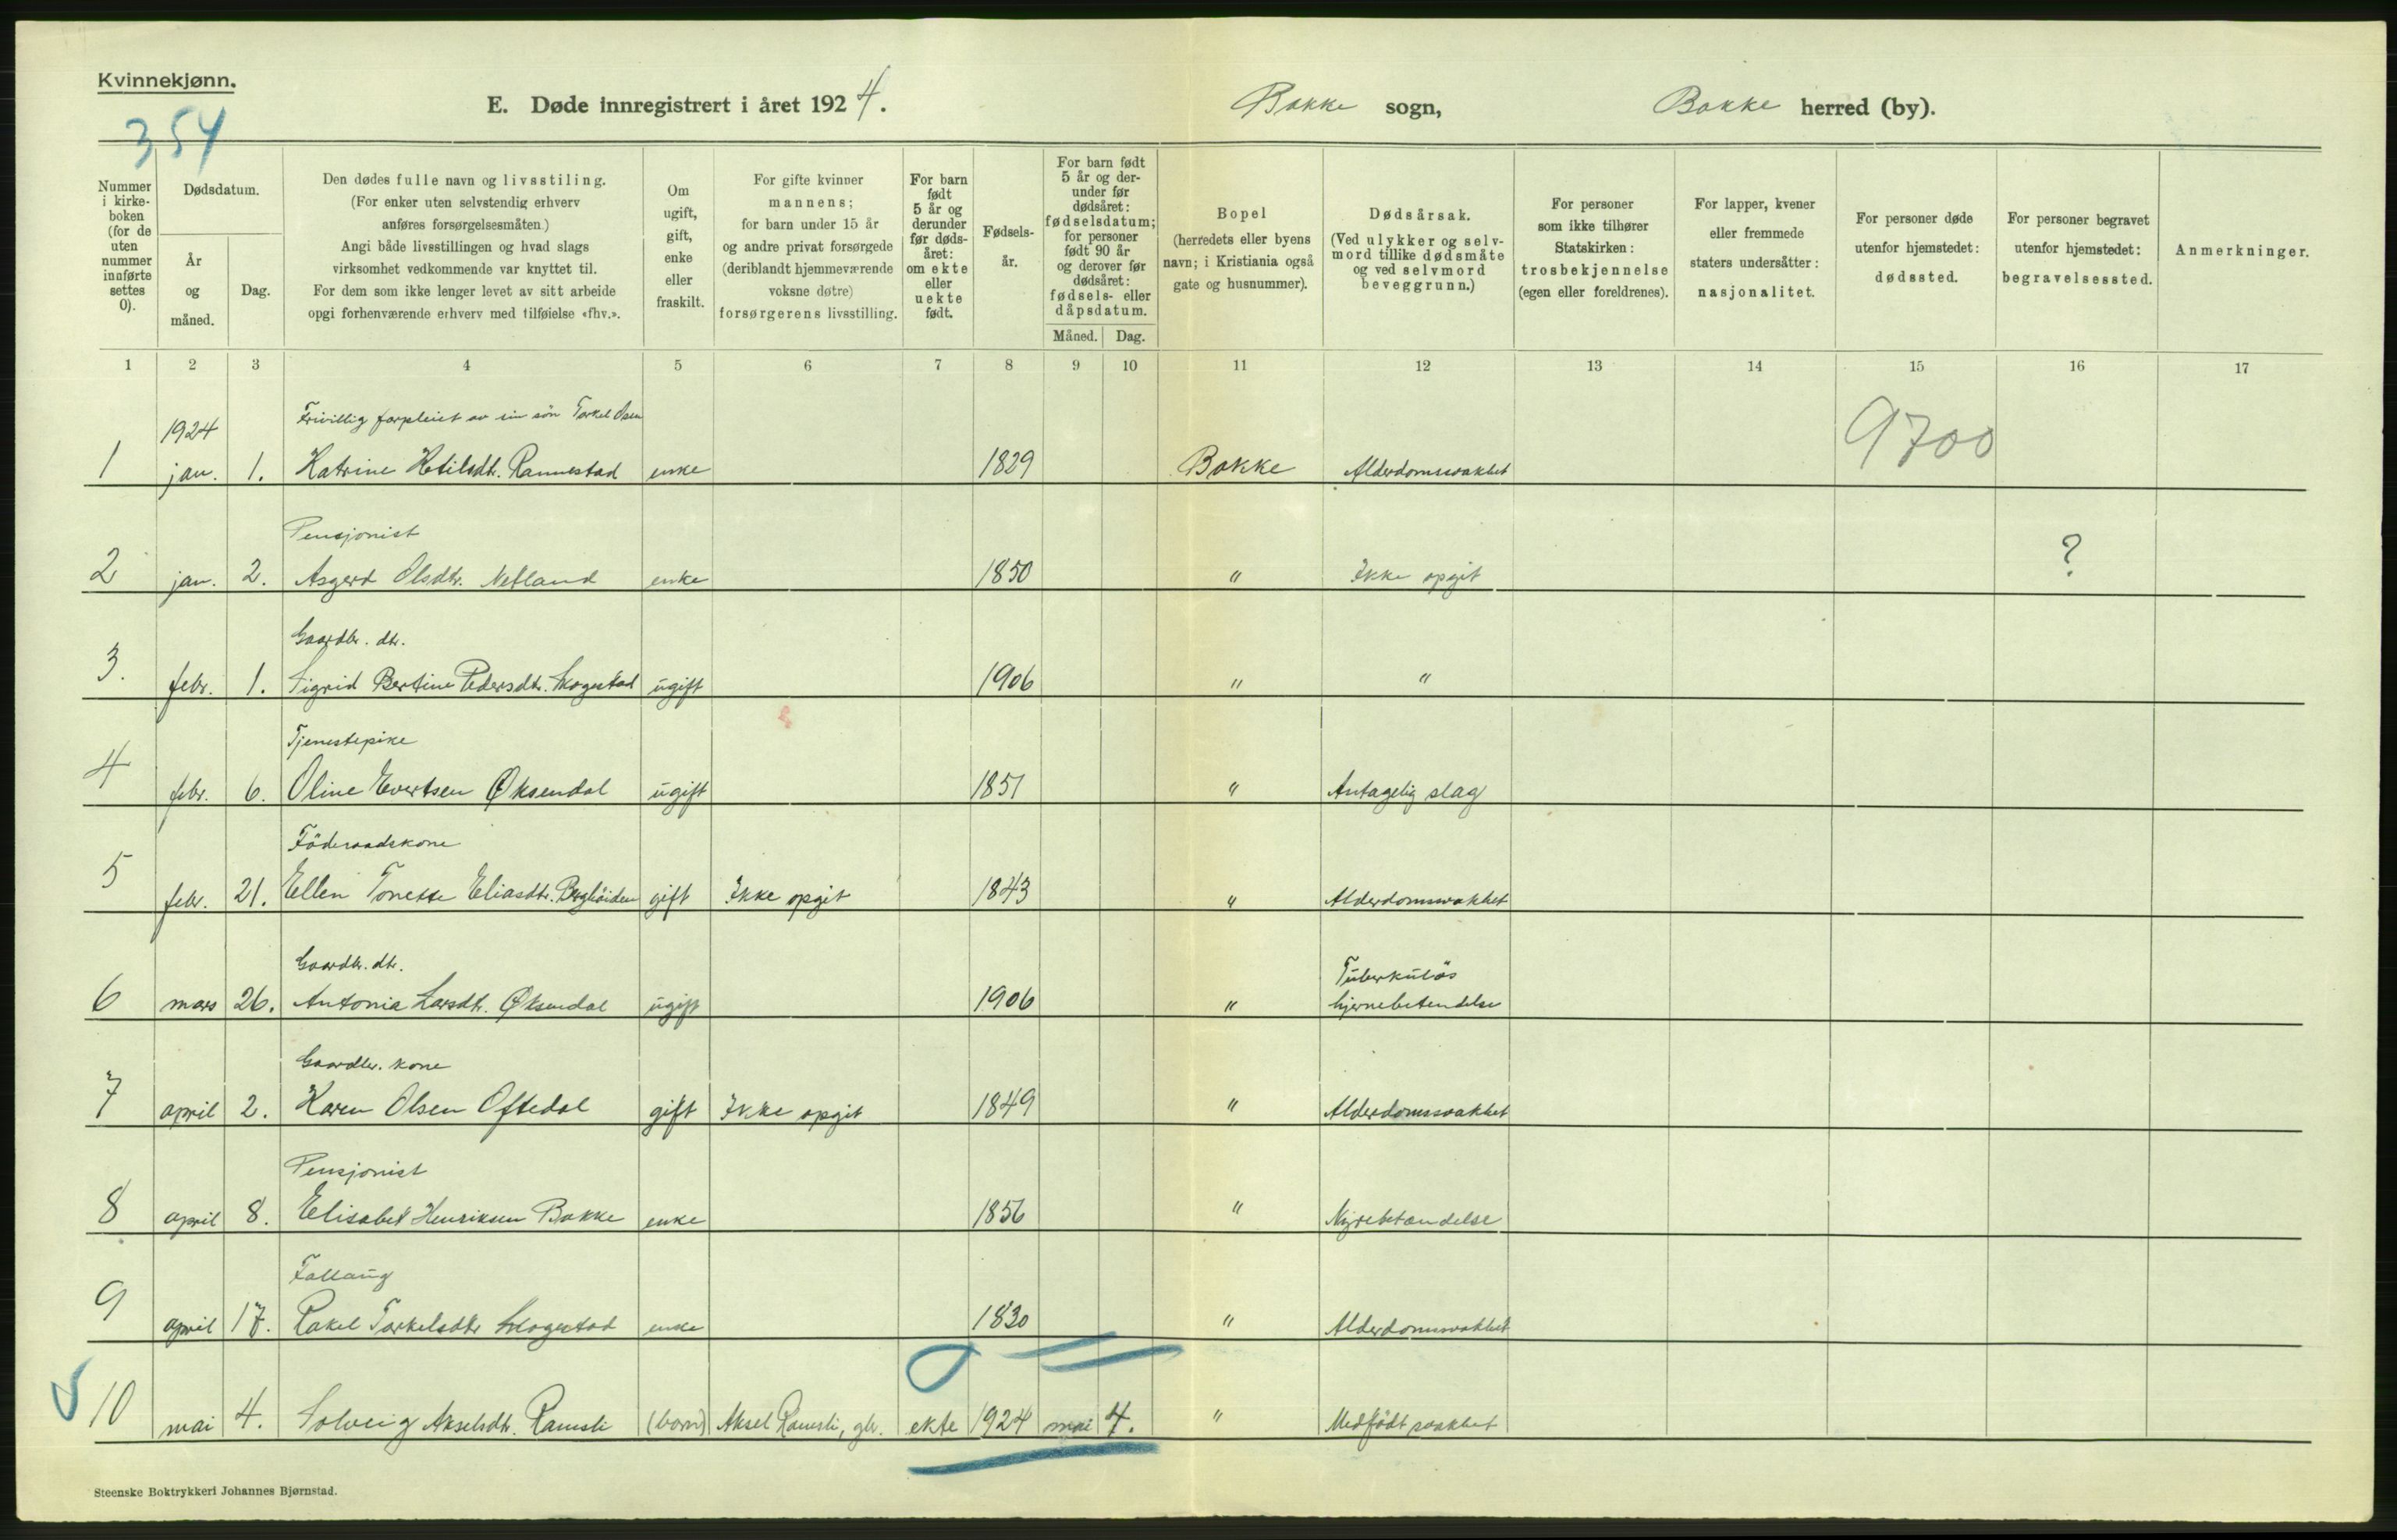 Kvinnekjønn.
354
E. Døde innregistrert i året 1924. Bakke sogn, Bakke herred (by).
Nummer i kirkeboken (for de uten nummer innførte settes 0).
Dødsdatum.
År og måned.
Dag.
Den dødes fulle navn og livsstiling.
(For enker uten selvstendig erhverv
anføres forsørgelsesmåten.)
Angi både livsstillingen og hvad slags
virksomhet vedkommende var knyttet til.
For dem som ikke lenger levet av sitt arbeide
opgi forhenværende erhverv med tilføielse «fhv.».
Om ugift, gift, enke eller fraskilt.
For gifte kvinner
mannens;
for barn under 15 år
og andre privat forsørgede
(deriblandt hjemmeværende
voksne døtre)
forsørgerens livsstilling.
For barn født 5 år og derunder før dødsåret: om ekte eller uekte født.
Fødselsår.
For barn født 5 år og derunder før dødsåret: fødselsdatum; for personer født 90 år og derover før dødsåret: fødsels- eller dåpsdatum.
Måned. Dag.
Bopel
(herredets eller byens
navn; i Kristiania også
gate og husnummer).
Dødsårsak.
(Ved ulykker og selv-
mord tillike dødsmåte
og ved selvmord
beveggrunn.)
For personer
som ikke tilhører
Statskirken:
trosbekjennelse
(egen eller foreldrenes).
For lapper, kvener
eller fremmede
staters undersåtter:
nasjonalitet.
For personer døde
utenfor hjemstedet:
dødssted.
For personer begravet
utenfor hjemstedet:
begravelsessted.
Anmerkninger.
1 2 3 4 5 6 7 8 9 10 11 12 13 14 15 16 17
1924 Frivillig forpleiet av sin sön Torkel Osen 9700
1 jan. 1. Katrine Ketilsdtr. Rannestad enke 1829 Bakke Alderdomssvakhet
Pensjonist ?
2 jan. 2. Asgerd Olsdtr. Netland enke 1850 " Ikke opgit
Gaardbr. dtr.
3. febr. 1. Sigrid Bertine Pedersdtr. Skogestad ugift 1906 " "
Tjenestepike
4 febr. 6. Oline Evertsen Øksendal ugift 1851 " Antagelig slag
Föderaadskone
5 febr. 21. Ellen Tonette Eliasdtr. gift Ikke opgit 1843 " Alderdomssvakhet
Gaardbr. dtr. Tuberkulös
6 mars 26. Antonia Larsdtr. Øksendal ugift 1906 " hjernebetendelse
Gaardbr. kone
7 april 2. Karen Olsen Oftedal gift Ikke opgit 1849 " Alderdomssvakhet
Pensjonist
8 april 8. Elisabet Henriksen Bakke enke 1856 " Nyrebetændelse
9 april 17. Rakel Torkelsdtr Skogestad enke 1830 " Alderdomssvakhet
10 mai 4. Solveig Akselsdtr. Ramsli (barn) Aksel Ramsli, gbr. ekte 1924 mai 4. " Medfödt svakhet
Steenske Boktrykkeri Johannes Bjørnstad.